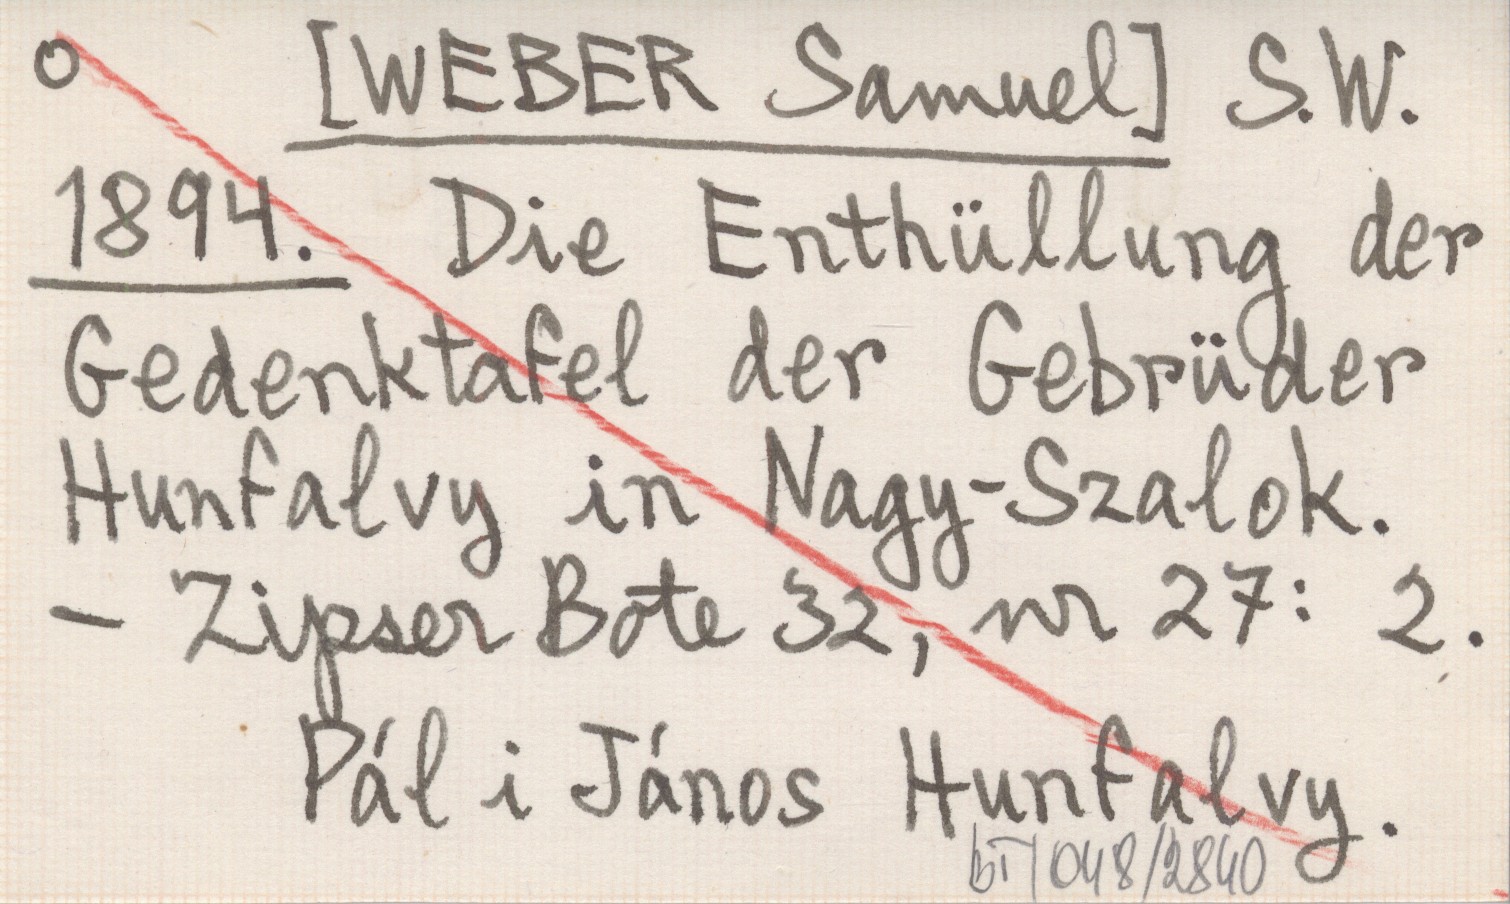 o [WEBER Samuel] S.W.
1894. Die Enthüllung der
Gedenktafel der Gebrüder
Hunfalvy in Nagy-Szalok.
- Zipser Bote 32, nr 27: 2.
Pál i János Hunfalvy.
bT/048/2840